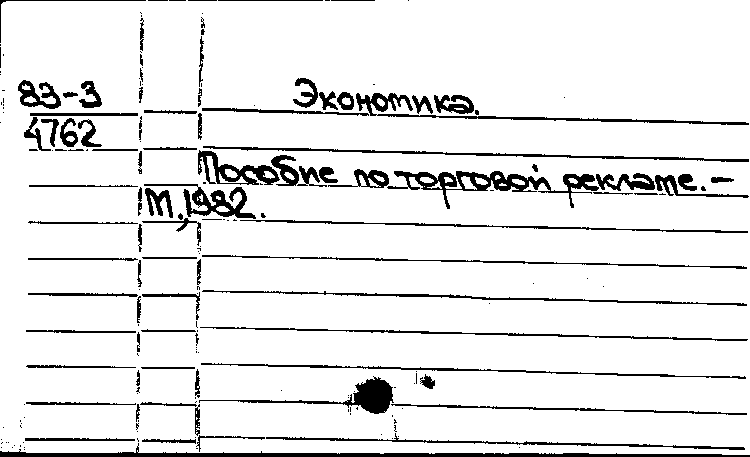 83-3 Экономика.
4762
Пособие по торговой рекламе. –
М., 1982.